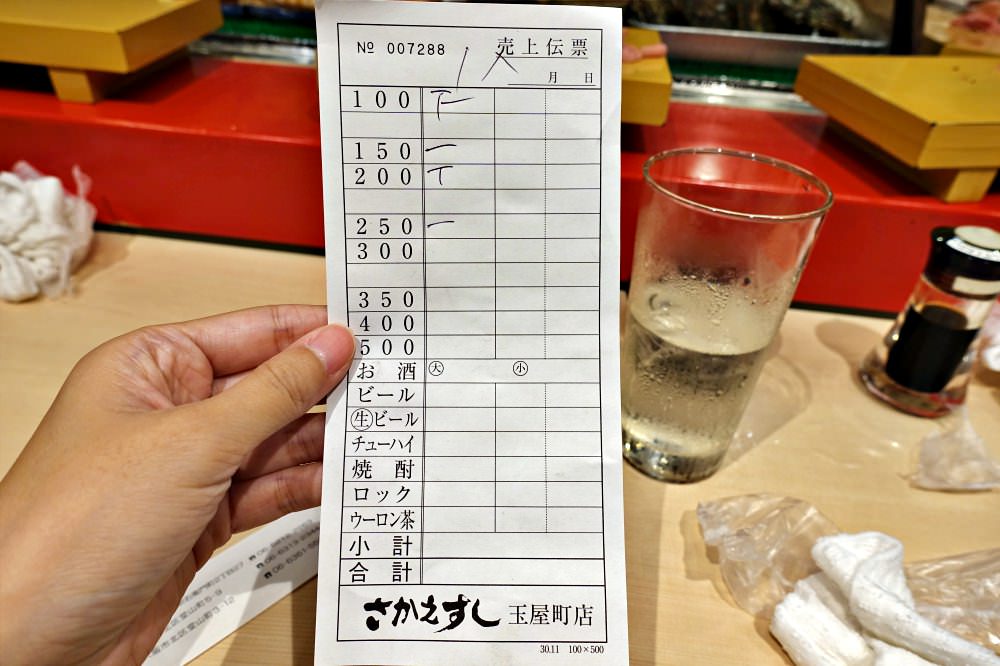 № 007288 売上伝票
1人
月 日
100 下一
150 一
200 丅
250 一
300
350
400
500
お酒 大 小
ビール
生ビール
チューハイ
焼酎
ロック
ウーロン茶
小計
合計
さかえすし 玉屋町店
30.11 100×500